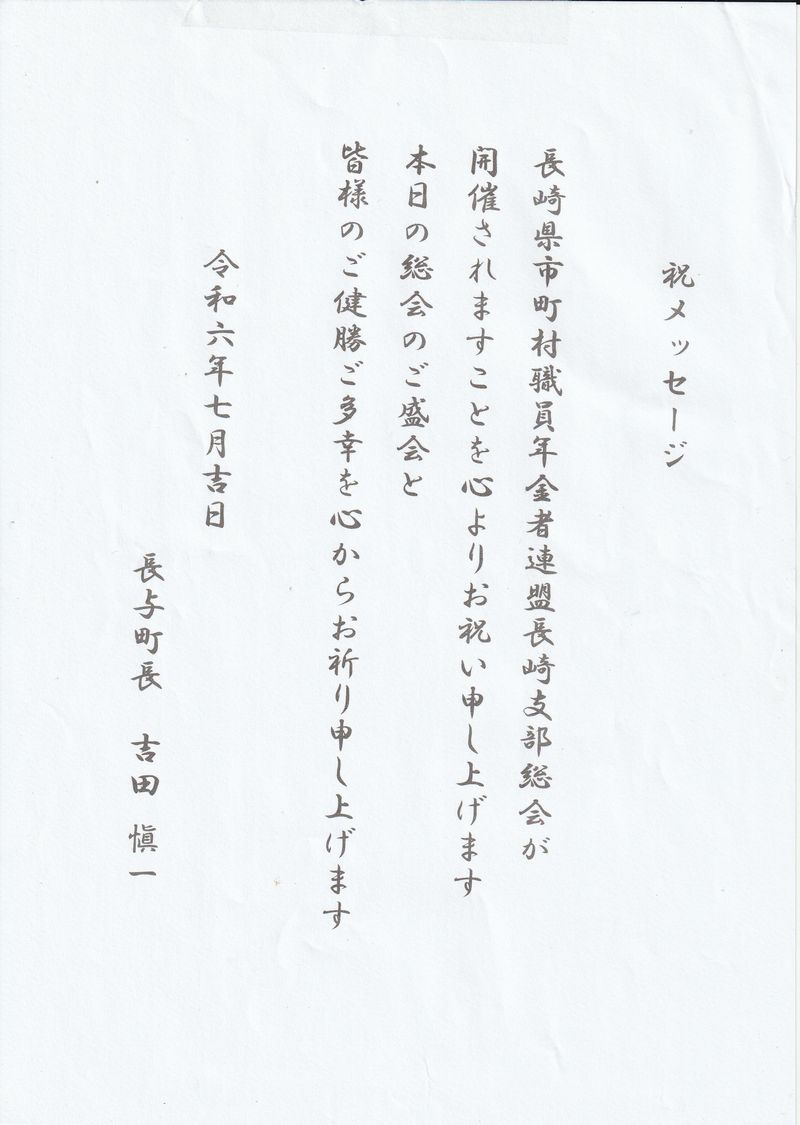 祝メッセージ
長崎県市町村職員年金者連盟長崎支部総会が
開催されますことを心よりお祝い申し上げます
本日の総会のご盛会と
皆様のご健勝ご多幸を心からお祈り申し上げます
令和六年七月吉日
長与町長　吉田　愼一